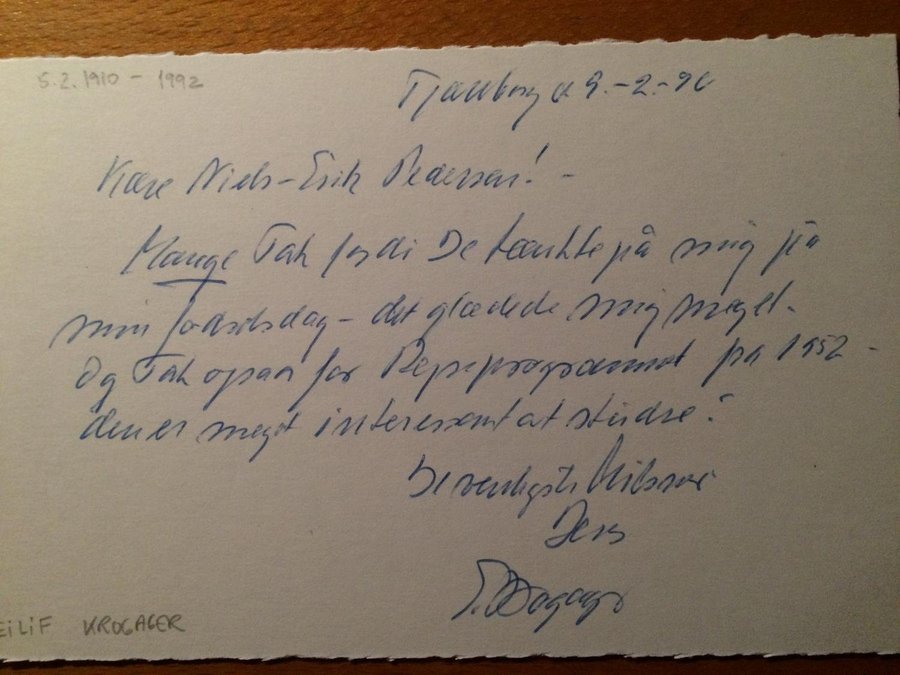 5.2.1910 - 1992
Tjæreborg d 9.-2.-90
Kære Niels-Erik Pedersen! -
Mange Tak fordi De tænkte på mig på
min fødselsdag - det glædede mig meget.
Og Tak også for Rejseprogrammet fra 1952 -
den er meget interessant at studere!
De venligste Hilsner
Deres
E. Krogager
EILIF KROGAGER